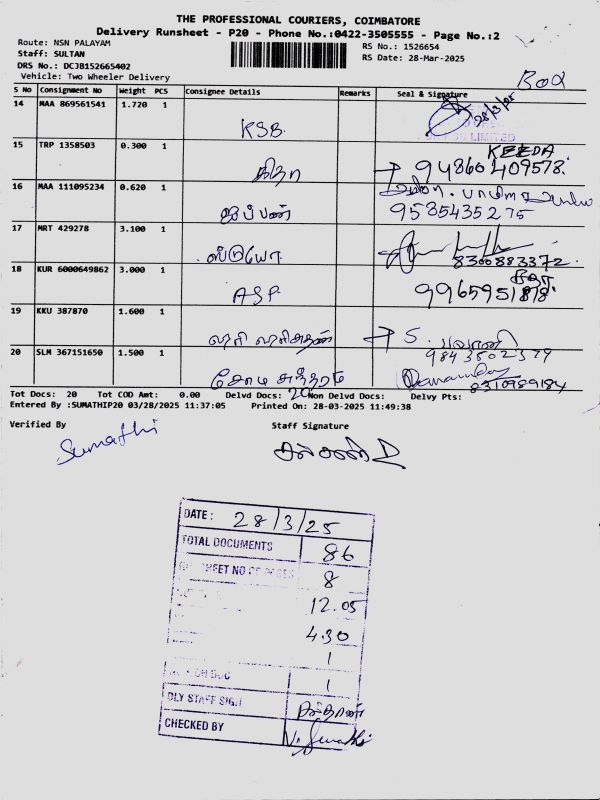 THE PROFESSIONAL COURIERS, COIMBATORE
Delivery Runsheet - P20 - Phone No.:0422-3505555 - Page No.:2
Route: NSN PALAYAM
RS No.: 1526654
Staff: SULTAN
RS Date: 28-Mar-2025
DRS No.: DCJB152665402
Vehicle: Two Wheeler Delivery
S No Consignment No Weight PCS Consignee Details Remarks Seal & Signature
14 MAA 869561541 1.720 1 KSB 28/3/25
LIMITED
15 TRP 1358503 0.300 1 கிதா KEEDA
94860409578.
16 MAA 111095234 0.620 1 ஐப்பன்
9535435275
17 MRT 429278 3.100 1
8300883372.
18 KUR 6000649862 3.000 1 ASP 9965951878
19 KKU 387870 1.600 1 S. பவானி
9843502379
20 SLM 367151650 1.500 1
8310989184
Tot Docs: 20 Tot COD Amt: 0.00 Delvd Docs: 20 Non Delvd Docs: Delvy Pts:
Entered By :SUMATHIP20 03/28/2025 11:37:05 Printed On: 28-03-2025 11:49:38
Verified By Staff Signature
Sumathi
DATE: 28/3/25
TOTAL DOCUMENTS 86
SHEET NO OF 8
12.05
4.30
1
DOC 1
DLY STAFF SIGN
CHECKED BY V. Sumathi